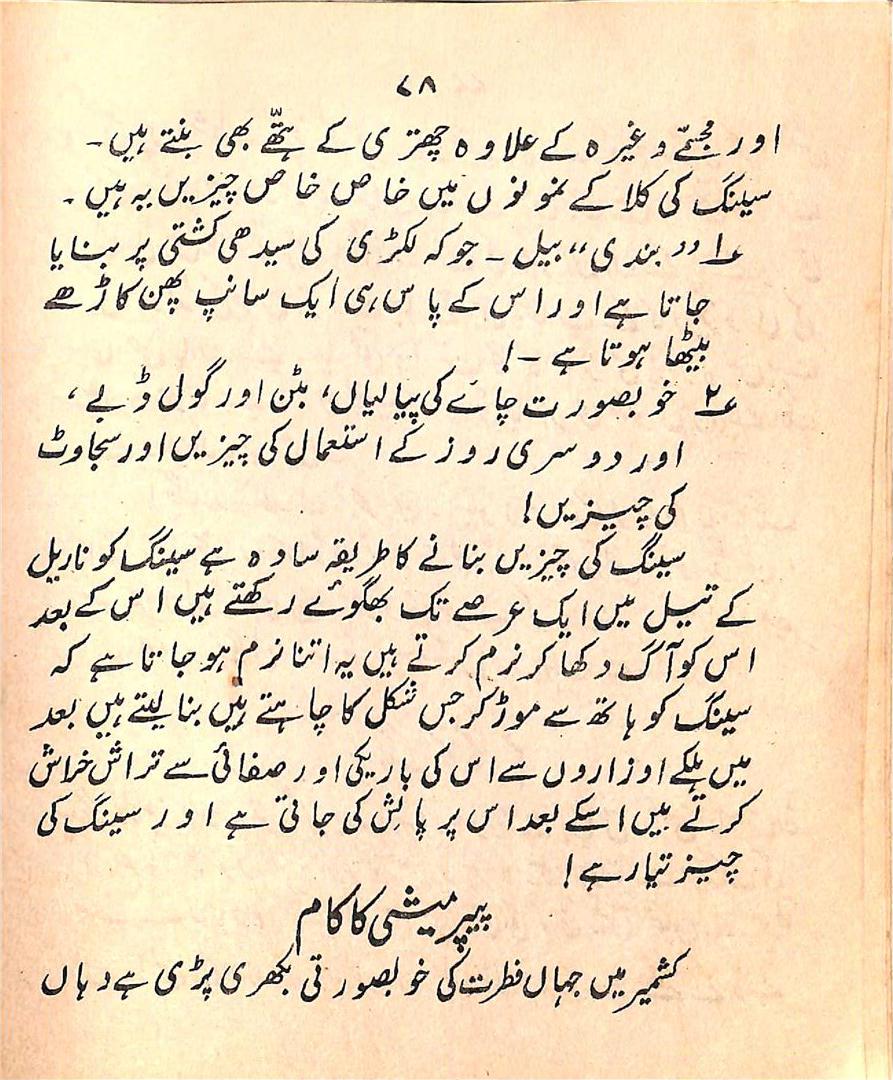 ۷۸
اور مجسمّے وغیرہ کے علاوہ چھتری کے ہتھّے بھی بنتے ہیں۔
سینگ کی کلا کے نمونوں میں خاص خاص چیزیں یہ ہیں۔
؁۱ ”بندی“ بیل۔ جوکہ لکڑی کی سیدھی کشتی پر بنایا
جاتا ہے اور اس کے پاس ہی ایک سانپ پھن کاڑھے
بیٹھا ہوتا ہے ۔!
؁۲ خوبصورت چائے کی پیالیاں، بٹن اور گول ڈبے،
اور دوسری روز کے استعمال کی چیزیں اور سجاوٹ
کی چیزیں!
سینگ کی چیزیں بنانے کا طریقہ سادہ ہے سینگ کو ناریل
کے تیل میں ایک عرصے تک بھگوئے رکھتے ہیں اس کے بعد
اس کو آگ دکھا کر نرم کرتے ہیں یہ اتنا نرم ہو جاتا ہے کہ
سینگ کو ہاتھ سے موڑ کر جس شکل کا چاہتے ہیں بنا لیتے ہیں بعد
میں ہلکے اوزاروں سے اس کی باریکی اور صفائی سے تراش خراش
کرتے ہیں اسکے بعد اس پر پالِش کی جاتی ہے اور سینگ کی
چیز تیار ہے!
پیپر میشی کا کام
کشمیر میں جہاں فطرت کی خوبصورتی بکھری پڑی ہے وہاں